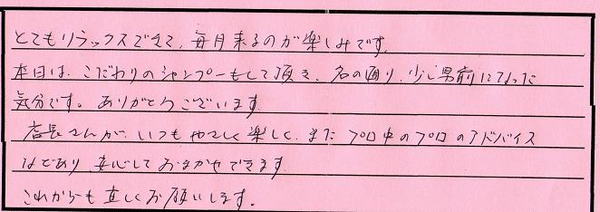 とてもリラックスできて、毎月来るのが楽しみです。
本日は、こだわりのシャンプーもして頂き、名の通り、少し男前になった
気分です。ありがとうございます。
店長さんが、いつもやさしく楽しく、また プロ中のプロのアドバイス
などあり、安心しておまかせできます。
これからも宜しくお願いします。